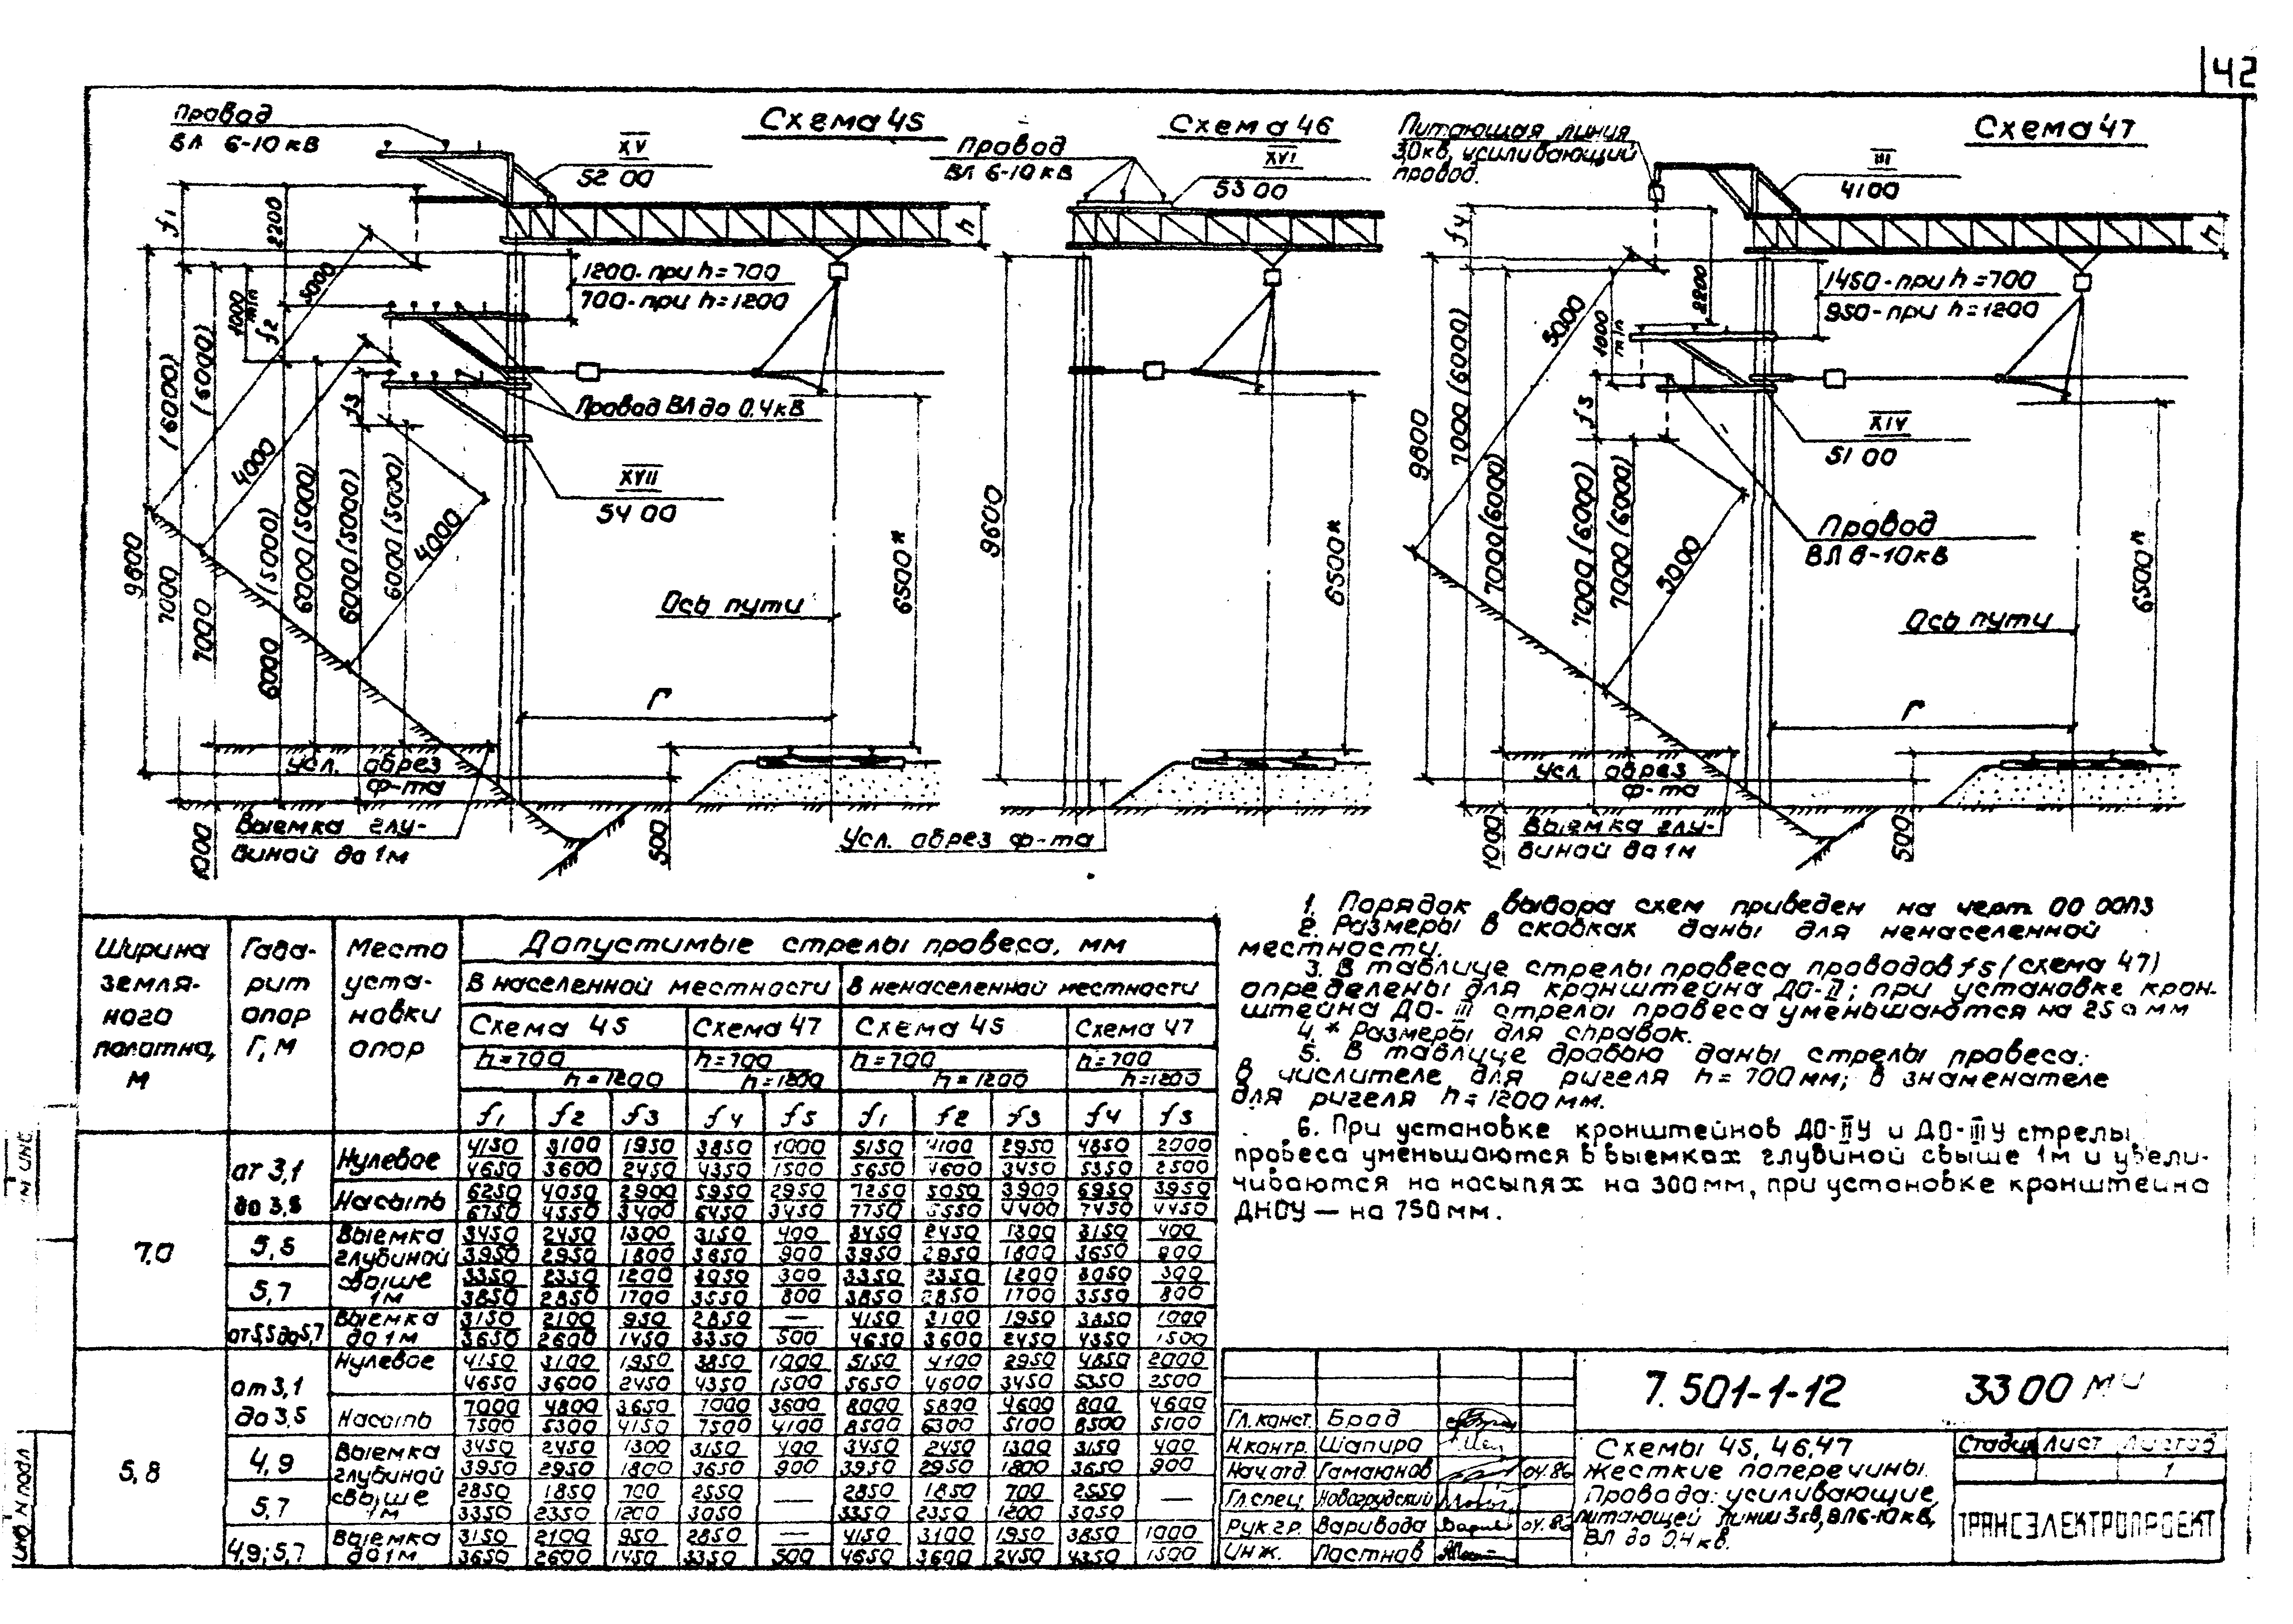 42
Провод
ВЛ 6-10кВ
XV
52 00
Схема 45
Провод
ВЛ 6-10кВ
Схема 46
XVI
53 00
Питающая линия
3,0кв, усиливающий
провод.
Схема 47
III
4100
f1
2200
5000
1000 min
f2
h
1200-при h=700
700-при h=1200
(6000)
(6000)
4000
f3
Провод ВЛ до 0.4кВ
XVII
54 00
4000
9600
7000
7000
(5000)
6000
6000(5000)
6000(5000)
6000(5000)
6500*
Ось пути
Г
Усл. обрез
ф-та
1000
Выемка глу-
биной до 1м
500
9600
6500*
Усл. обрез ф-та
f4
2200
5000
1000 min
h
1450-при h=700
950-при h=1200
9600
7000(6000)
7000(6000)
f5
7000(6000)
7000(6000)
5000
XIV
51 00
Провод
ВЛ 6-10кВ
6500*
Ось пути
Г
Усл. обрез
ф-та
1000
Выемка глу-
биной до 1м
500
Ширина земля-ного полотна, м
Габа-рит опор Г, м
Место уста-новки опор
Допустимые стрелы провеса, мм
В населенной местности В ненаселенной местности
Схема 45 Схема 47 Схема 45 Схема 47
h=700 h=700 h=700 h=700
h=1200 h=1200 h=1200 h=1200
f1 f2 f3 f4 f5 f1 f2 f3 f4 f5
7,0
от 3,1 до 3,5
Нулевое
4150 3100 1950 3850 1000 5150 4100 2950 4850 2000
4650 3600 2450 4350 1500 5650 4600 3450 5350 2500
Насыпь
6250 4050 2900 5950 2950 7250 5050 3900 6950 3950
6750 4550 3400 6450 3450 7750 5550 4400 7450 4450
5,5
Выемка глубиной свыше 1м
3450 2450 1300 3150 400 3450 2450 1300 3150 400
3950 2950 1800 3650 900 3950 2950 1800 3650 900
5,7
3350 2350 1200 3050 300 3350 2350 1200 3050 300
3850 2850 1700 3550 800 3850 2850 1700 3550 800
от 5,5 до 5,7
Выемка до 1м
3150 2100 950 2850 — 4150 3100 1950 3850 1000
3650 2600 1450 3350 500 4650 3600 2450 4350 1500
5,8
от 3,1 до 3,5
Нулевое
4150 3100 1950 3850 1000 5150 4100 2950 4850 2000
4650 3600 2450 4350 1500 5650 4600 3450 5350 2500
Насыпь
7000 4800 3650 7000 3600 8000 5800 4600 800 4600
7500 5300 4150 7500 4100 8500 6300 5100 8500 5100
4,9
Выемка глубиной свыше 1м
3450 2450 1300 3150 400 3450 2450 1300 3150 400
3950 2950 1800 3650 900 3950 2950 1800 3650 900
5,7
2850 1850 700 2550 — 2850 1850 700 2550 —
3350 2350 1200 3050 3350 2350 1200 3050
4,9; 5,7
Выемка до 1м
3150 2100 950 2850 — 4150 3100 1950 3850 1000
3650 2600 1450 3350 500 4650 3600 2450 4350 1500
1. Порядок выбора схем приведен на черт. 00 00ПЗ
2. Размеры в скобках даны для ненаселенной
местности.
3. В таблице стрелы провеса проводов f5 (схема 47)
определены для кронштейна ДО-II; при установке крон-
штейна ДО-III стрелы провеса уменьшаются на 250мм
4. * Размеры для справок.
5. В таблице дробью даны стрелы провеса:
в числителе для ригеля h=700мм; в знаменателе
для ригеля h=1200мм.
6. При установке кронштейнов ДО-IIУ и ДО-IIIУ стрелы
провеса уменьшаются в выемках глубиной свыше 1м и увели-
чиваются на насыпях на 300мм, при установке кронштейна
ДНОУ — на 750мм.
7.501-1-12 3300 МЧ
Гл. конст. Брод
Н.контр. Шапиро
Нач.отд. Гамаюнов 04.86
Гл.спец. Новогрудский
Рук.гр. Варивода 04.86
Инж. Ластнов
Схемы 45, 46, 47
Жесткие поперечины.
Провода: усиливающие,
питающей линии 3кв, ВЛ 6-10кВ,
ВЛ до 0,4кв.
Стадия Лист Листов
1
ТРАНСЭЛЕКТРОПРОЕКТ
Инв N подл